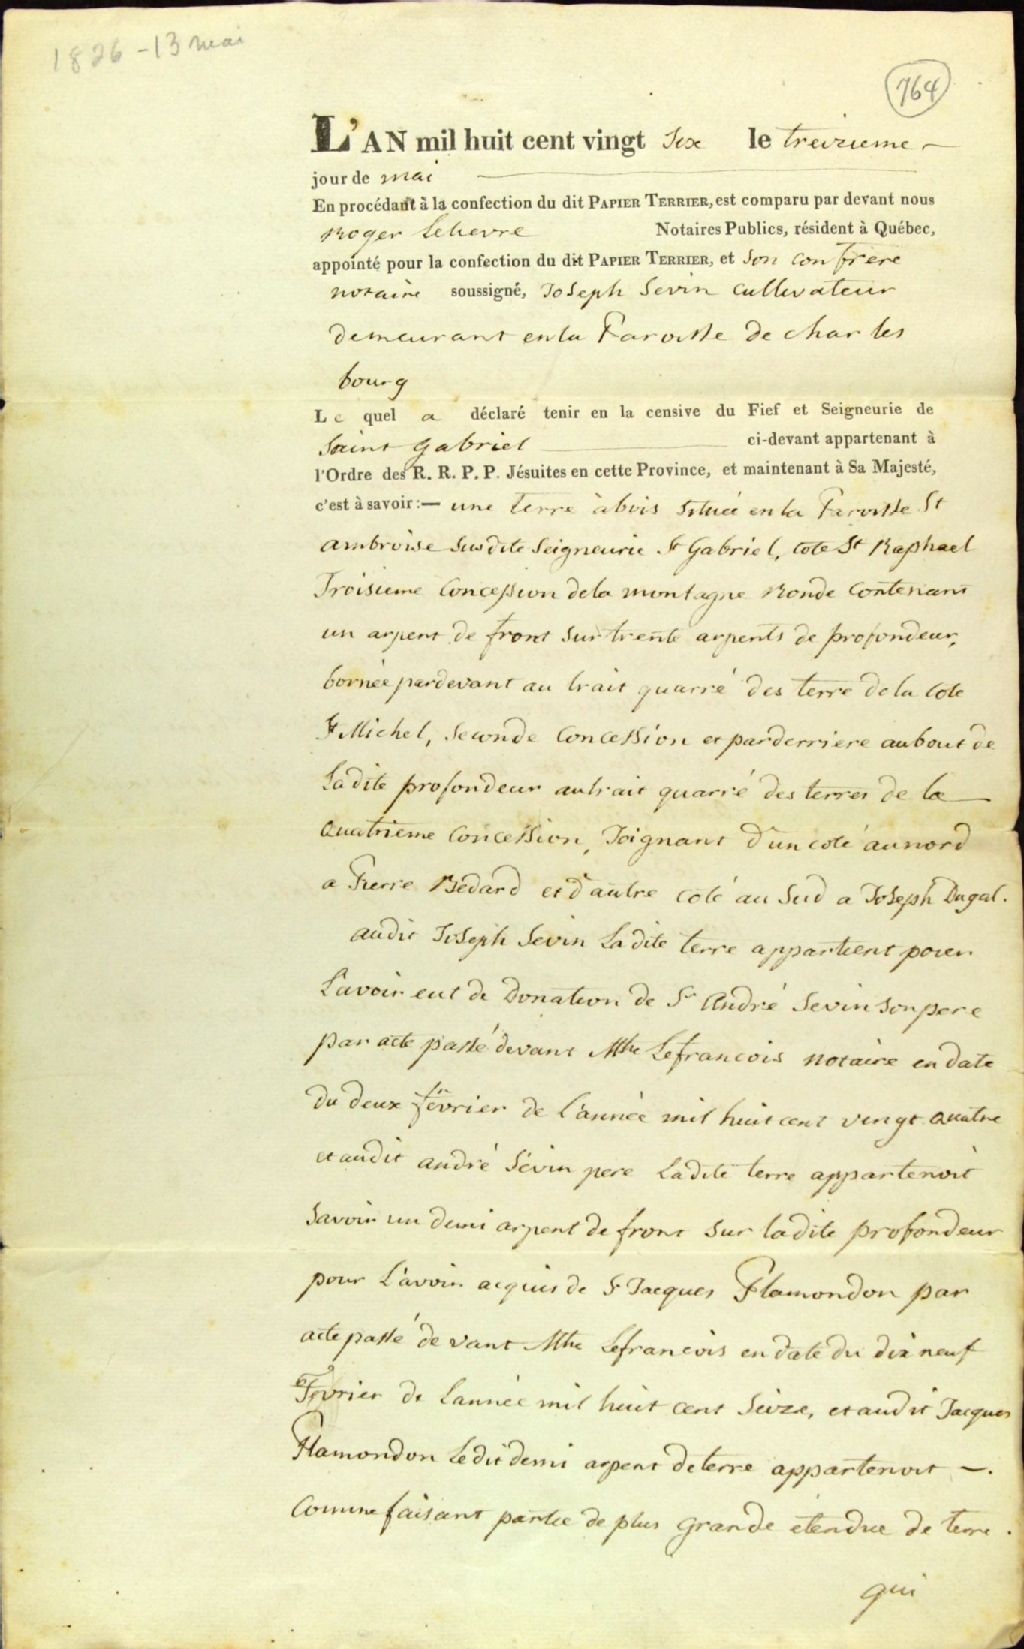 1826 - 13 mai
764
L'AN mil huit cent vingt Six le treizieme
jour de mai
En procédant à la confection du dit PAPIER TERRIER, est comparu par devant nous
Roger Lelievre Notaires Publics, résident à Québec,
appointé pour la confection du dit PAPIER TERRIER, et Son Confrere
notaire soussigné, Joseph Sevin Cultivateur
demeurant en la Paroisse de Charles
bourg
Le quel a déclaré tenir en la censive du Fief et Seigneurie de
Saint Gabriel ci-devant appartenant à
l'Ordre des R. R. P. P. Jésuites en cette Province, et maintenant à Sa Majesté,
c'est à savoir :— une terre à bois Située en la Paroisse St
ambroise Susdite Seigneurie St Gabriel, Cote St Raphael
Troisieme Concession de la montagne Ronde Contenant
un arpent de front Sur trente arpents de profondeur,
bornée pardevant au trait quarré des terre de la Cote
St Michel, Seconde Concession et parderriere au bout de
Ladite profondeur au trait quarré des terres de la
Quatrieme Concession, Joignant d'un coté au nord
a Pierre Bédard et d'autre coté au Sud a Joseph Dugal.
audit Joseph Sevin Ladite terre appartient pour
L'avoir eut de Donation de Sr André Sevin Son pere
par acte passé devant Mtre Lefrancois notaire en date
du deux fevrier de L'année mil huit cent vingt Quatre
et audit andré Sévin pere Ladite terre appartenoit
Savoir un demi arpent de front Sur ladite profondeur
pour L'avoir acquis de Sr Jacques Plamondon par
acte passé devant Mtre Lefrancois en date du dix neuf
Fevrier de Lannée mil huit cent Seize, et audit Jacques
Plamondon Ledit demi arpent de terre appartenoit —.
Comme faisant partie de plus grande étendue de terre.
qui